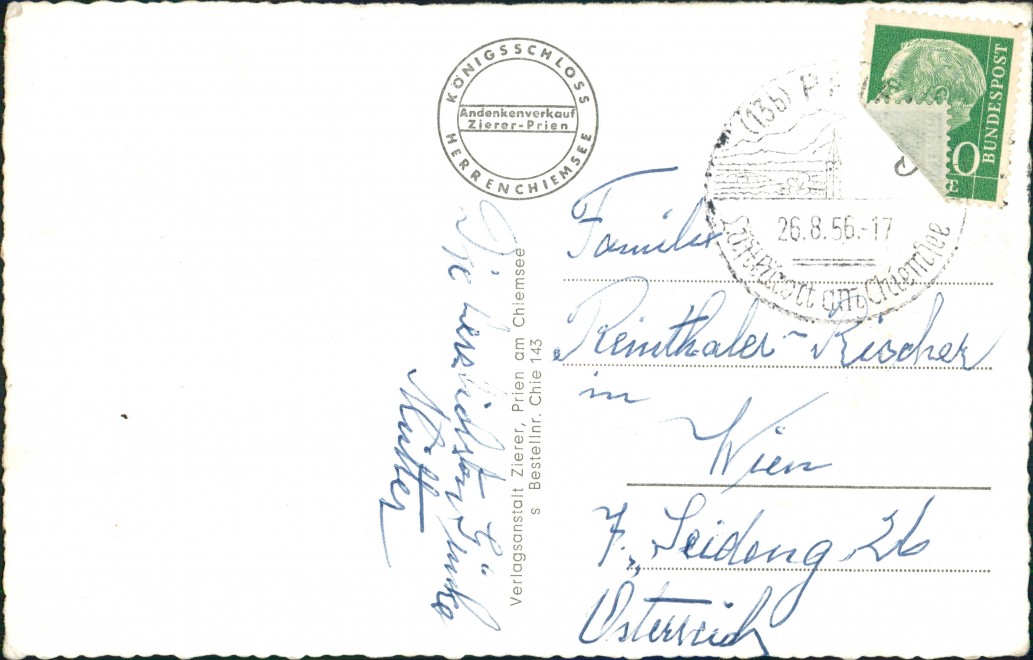 KÖNIGSSCHLOSS
Andenkenverkauf
Zierer-Prien
HERRENCHIEMSEE
(13b) PR
26.8.56.-17
Luftkurort am Chiemsee
BUNDESPOST
0
Die herzlichsten Grüße
Mutter
Verlagsanstalt Zierer, Prien am Chiemsee
s Bestellnr. Chie 143
Familie
Reinthaler-Rischer
in
Wien
7., Seideng 26
Österreich